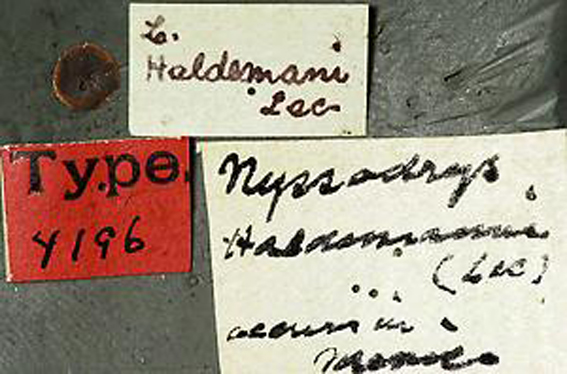 L.
Haldemani
Lec
Type.
4196
Nyssodrys
Haldemanni
(Lec)
occurs in
Mexico